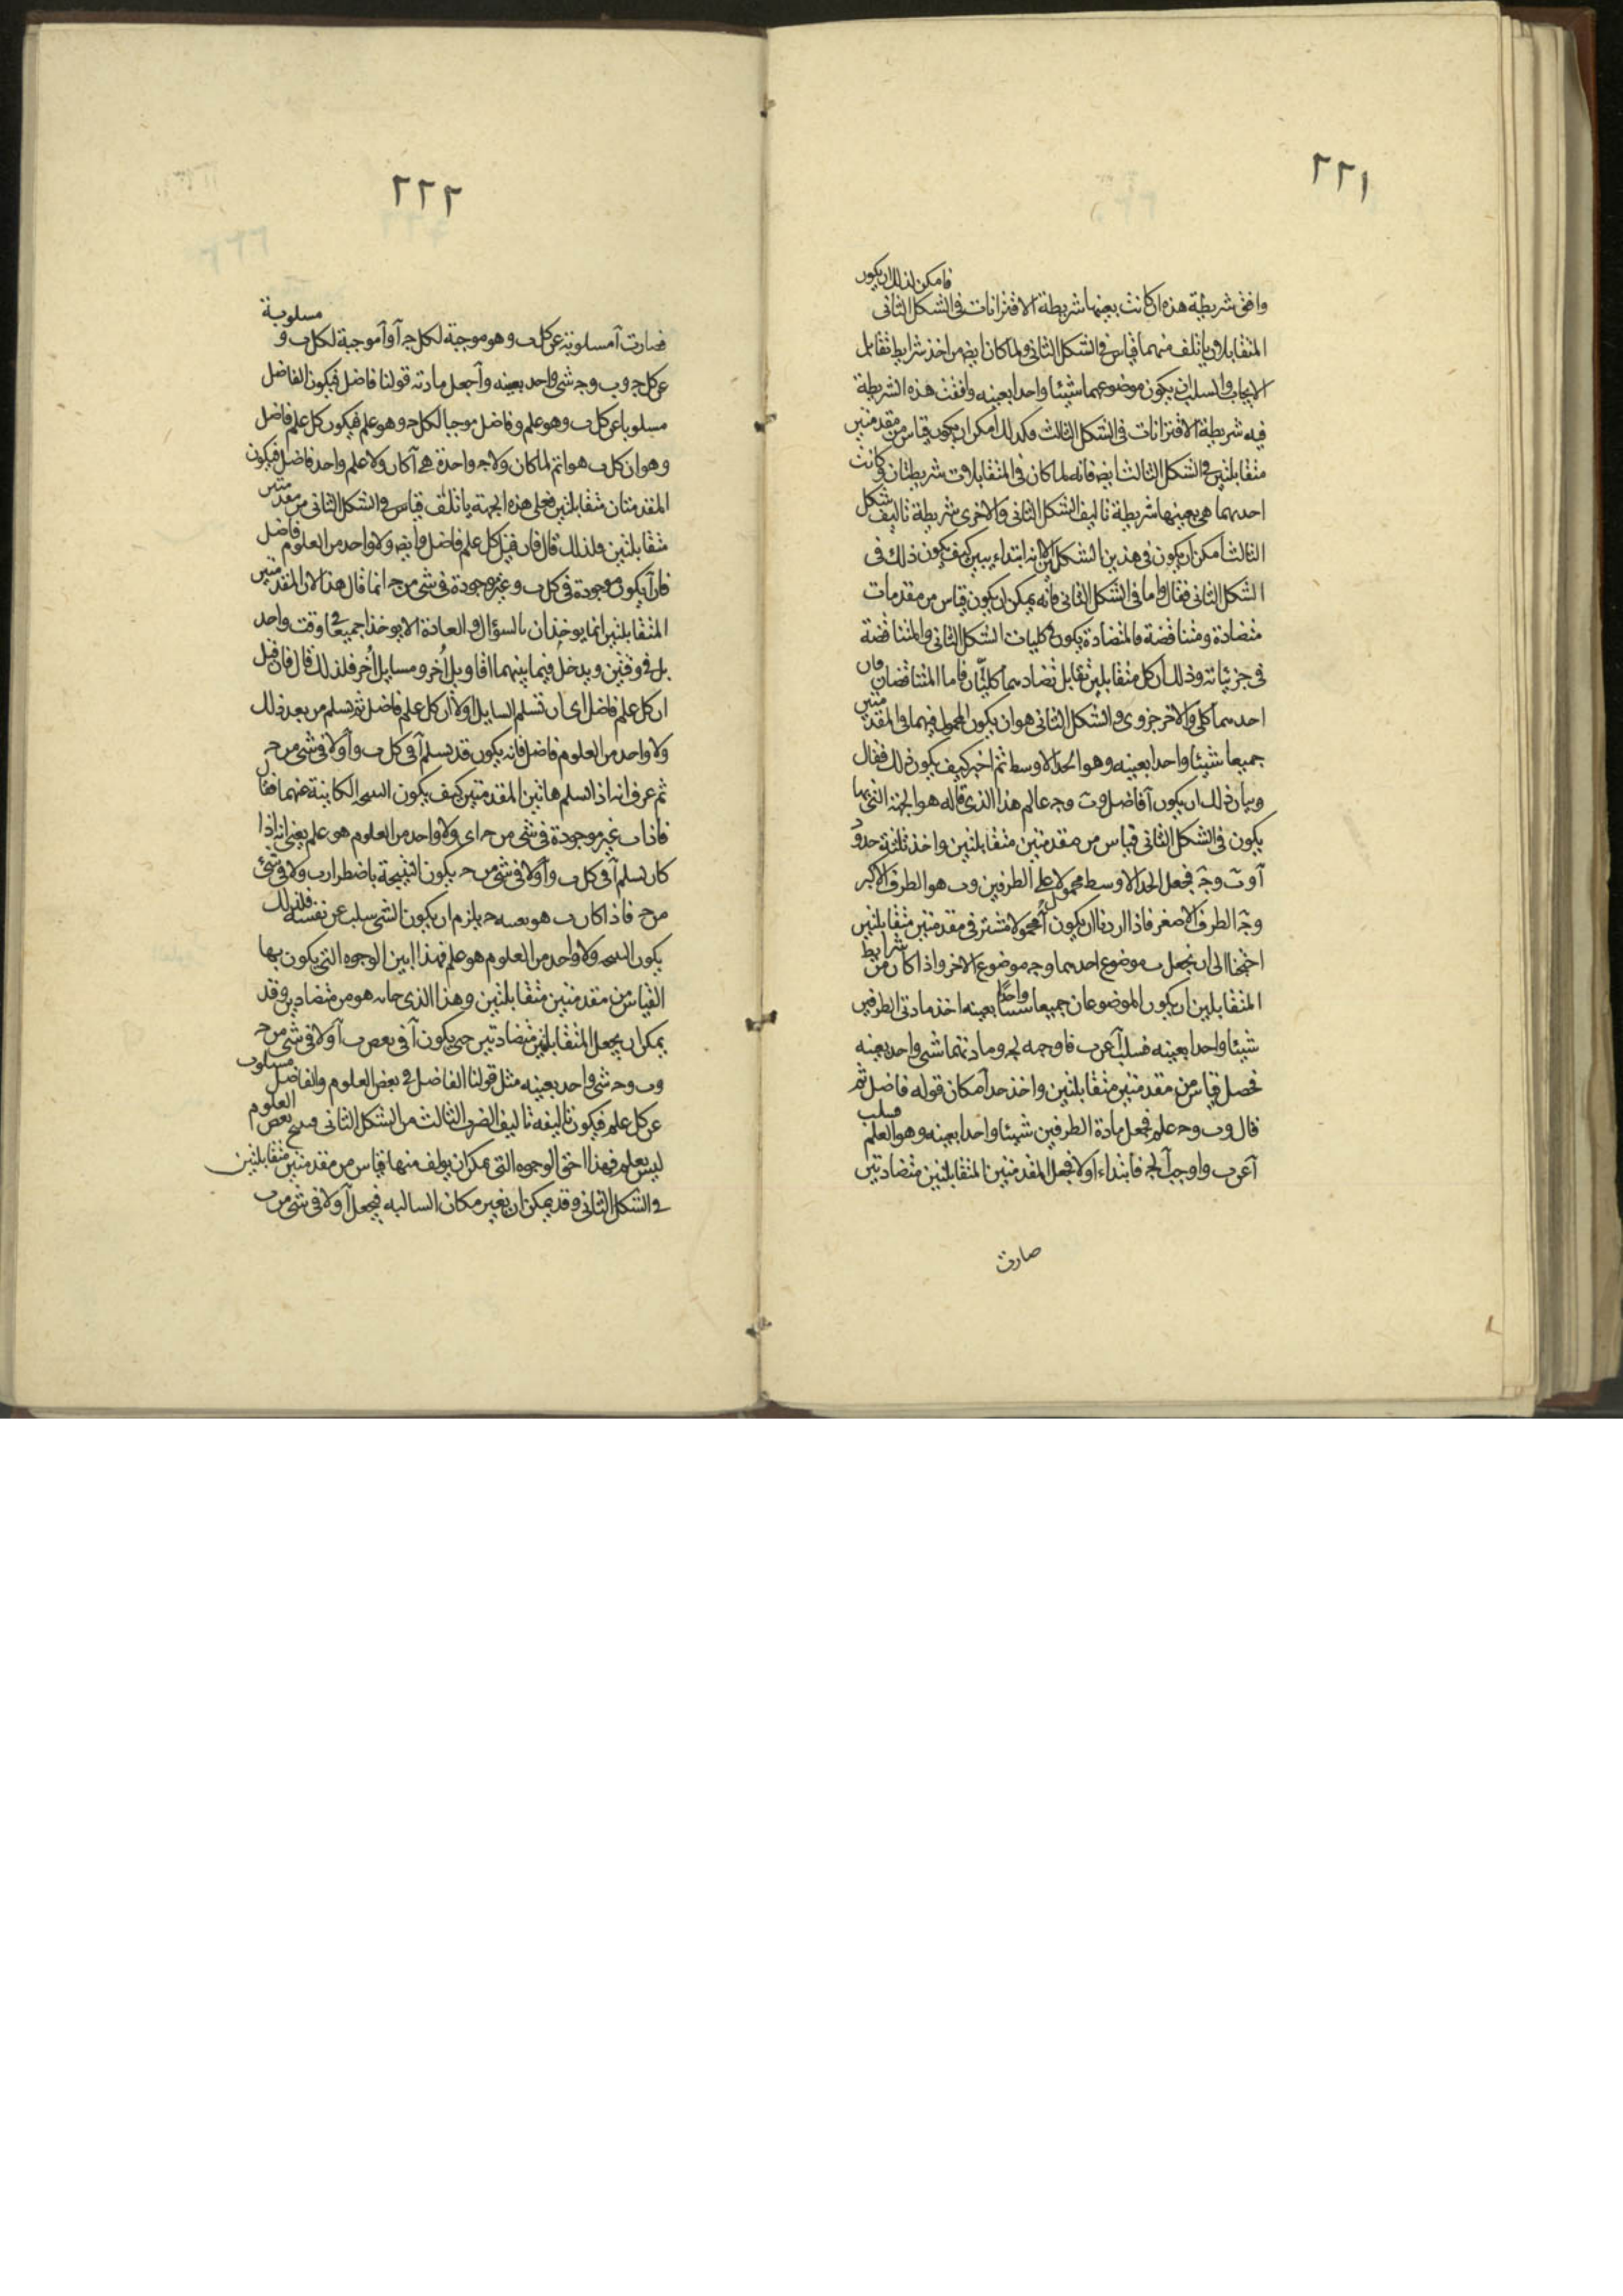 ٢٢١
وافق شريطة هذه اذ كانت بعينها شريطة الاقترانات في الشكل الثاني فامكن لذلك ان يكون
المتقابلات يأتلف منهما قياس في الشكل الثاني ولما كان ايضا من اخذ شرايط تقابل
الايجاب والسلب ان يكون موضوعهما شيئا واحدا بعينه وافقت هذه الشريطة
فيه شريطة الاقترانات في الشكل الثالث فكذلك أمكن ان يكون قياس من مقدمتين
متقابلتين في الشكل الثالث ايضا فانه لما كان في المتقابلات شريطتان وكانت
احدهما هي بعينها شريطة تاليف الشكل الثاني والاخرى شريطة تاليف شكل
الثالث أمكن ان يكون في هذين الشكلين ابتداء يبين كيف يكون ذلك في
الشكل الثاني فقال واما في الشكل الثاني فانه يمكن ان يكون قياس من مقدمات
متضادة ومتناقضة فالمتضادة يكون في كليات الشكل الثاني والمتناقضة
في جزئياته وذلك ان كل متقابلين تقابل تضاد هما كليتان فاما المتناقضان فان
احدهما كلي والاخر جزوي والشكل الثاني هو ان يكون المحمول فيهما والمقدمتين
جميعا شيئا واحدا بعينه وهو الحد الاوسط ثم اخبر كيف يكون ذلك فقال
وبيان ذلك ان يكون آ فاضل وب وج عالم هذا الذي قاله هو الجهة التي بها
يكون في الشكل الثاني قياس من مقدمتين متقابلتين واخذ ثلثة حدود
آ وب وج فجعل الحد الاوسط محمولا على الطرفين وب هو الطرف الاكبر
وج الطرف الاصغر فاذا اردنا ان يكون آ محمولا مشترك في مقدمتين متقابلتين
احتجنا الى ان نجعل ب موضوع احدهما وج موضوع الاخر واذا كان من شرايط
المتقابلين ان يكون الموضوعان جميعا شيئا واحدا بعينه اخذ مادتي الطرفين
شيئا واحدا بعينه فسلب آ عن ب فاوجبه لج ومادتهما شي واحد بعينه
فحصل قياس من مقدمتين متقابلتين واخذ حد آ مكان قوله فاضل ثم
قال وب وج علم فجعل مادة الطرفين شيئا واحدا بعينه وهو العلم فسلب
آ عن ب واوجب آ لج فابتداء اولا فجعل المقدمتين المتقابلتين متضادتين
صارت
٢٢٢
فصارت آ مسلوبة عن كل ب وهو موجبة لكل ج أو آ موجبة لكل ب و مسلوبة
عن كل ج وب وج شي واحد بعينه وآ جعل مادته قولنا فاضل فيكون الفاضل
مسلوبا عن كل ب وهو علم وفاضل موجبا لكل ج وهو علم فيكون كل علم فاضل
وهو ان كل ب هو آ ولا ج واحدة هي آ كان ولا علم واحد فاضل فيكون
المقدمتان متقابلتين فعلى هذه الجهة يأتلف قياس في الشكل الثاني من مقدمتين
متقابلتين فلذلك قال فان قيل كل علم فاضل وايضا ولا واحد من العلوم فاضل
فان آ يكون موجودة في كل ب وغير موجودة في شي من ج انما قال هذا لان المقدمتين
المتقابلتين انما يوخذان بالسؤال والعادة الا يوخذا جميعا في وقت واحد
بل في وقتين ويدخل فيما بينهما اقاويل أخر ومسايل أخر فلذلك قال فان قيل
ان كل علم فاضل اي ان تسلم السايل اولا ان كل علم فاضل ثم تسلم من بعد ذلك
ولا واحد من العلوم فاضل فانه يكون قد تسلم آ في كل ب وآ ولا في شي من ج
ثم عرف انه اذا تسلم هاتين المقدمتين كيف يكون النتيجة الكاينة عنهما فقال
فاذا ب غير موجودة في شي من ج اي ولا واحد من العلوم هو علم يعني انه اذا
كان تسلم آ في كل ب وآ ولا في شي من ج يكون النتيجة باضطرار ب ولا في شي
من ج فاذا كان ب هو بعينه ج يلزم ان يكون الشي سلب عن نفسه فلذلك
يكون النتيجة ولا واحد من العلوم هو علم فهذا ابين الوجوه التي يكون بها
القياس من مقدمتين متقابلتين وهذا الذي جاء به هو من متضادين وقد
يمكن ان يجعل المتقابلتين متضادتين حتى يكون آ في بعض ب آ ولا في شي من ج
وب وج شي واحد بعينه مثل قولنا الفاضل في بعض العلوم والفاضل مسلوب
عن كل علم فيكون تاليفه تاليف الضرب الثالث من الشكل الثاني فينتج بعض العلوم
ليس بعلم فهذا احق الوجوه التي يمكن ان يولف منها قياس من مقدمتين متقابلتين
في الشكل الثاني وقد يمكن ان يغير مكان السالبه فيجعل آ ولا في شي من ب